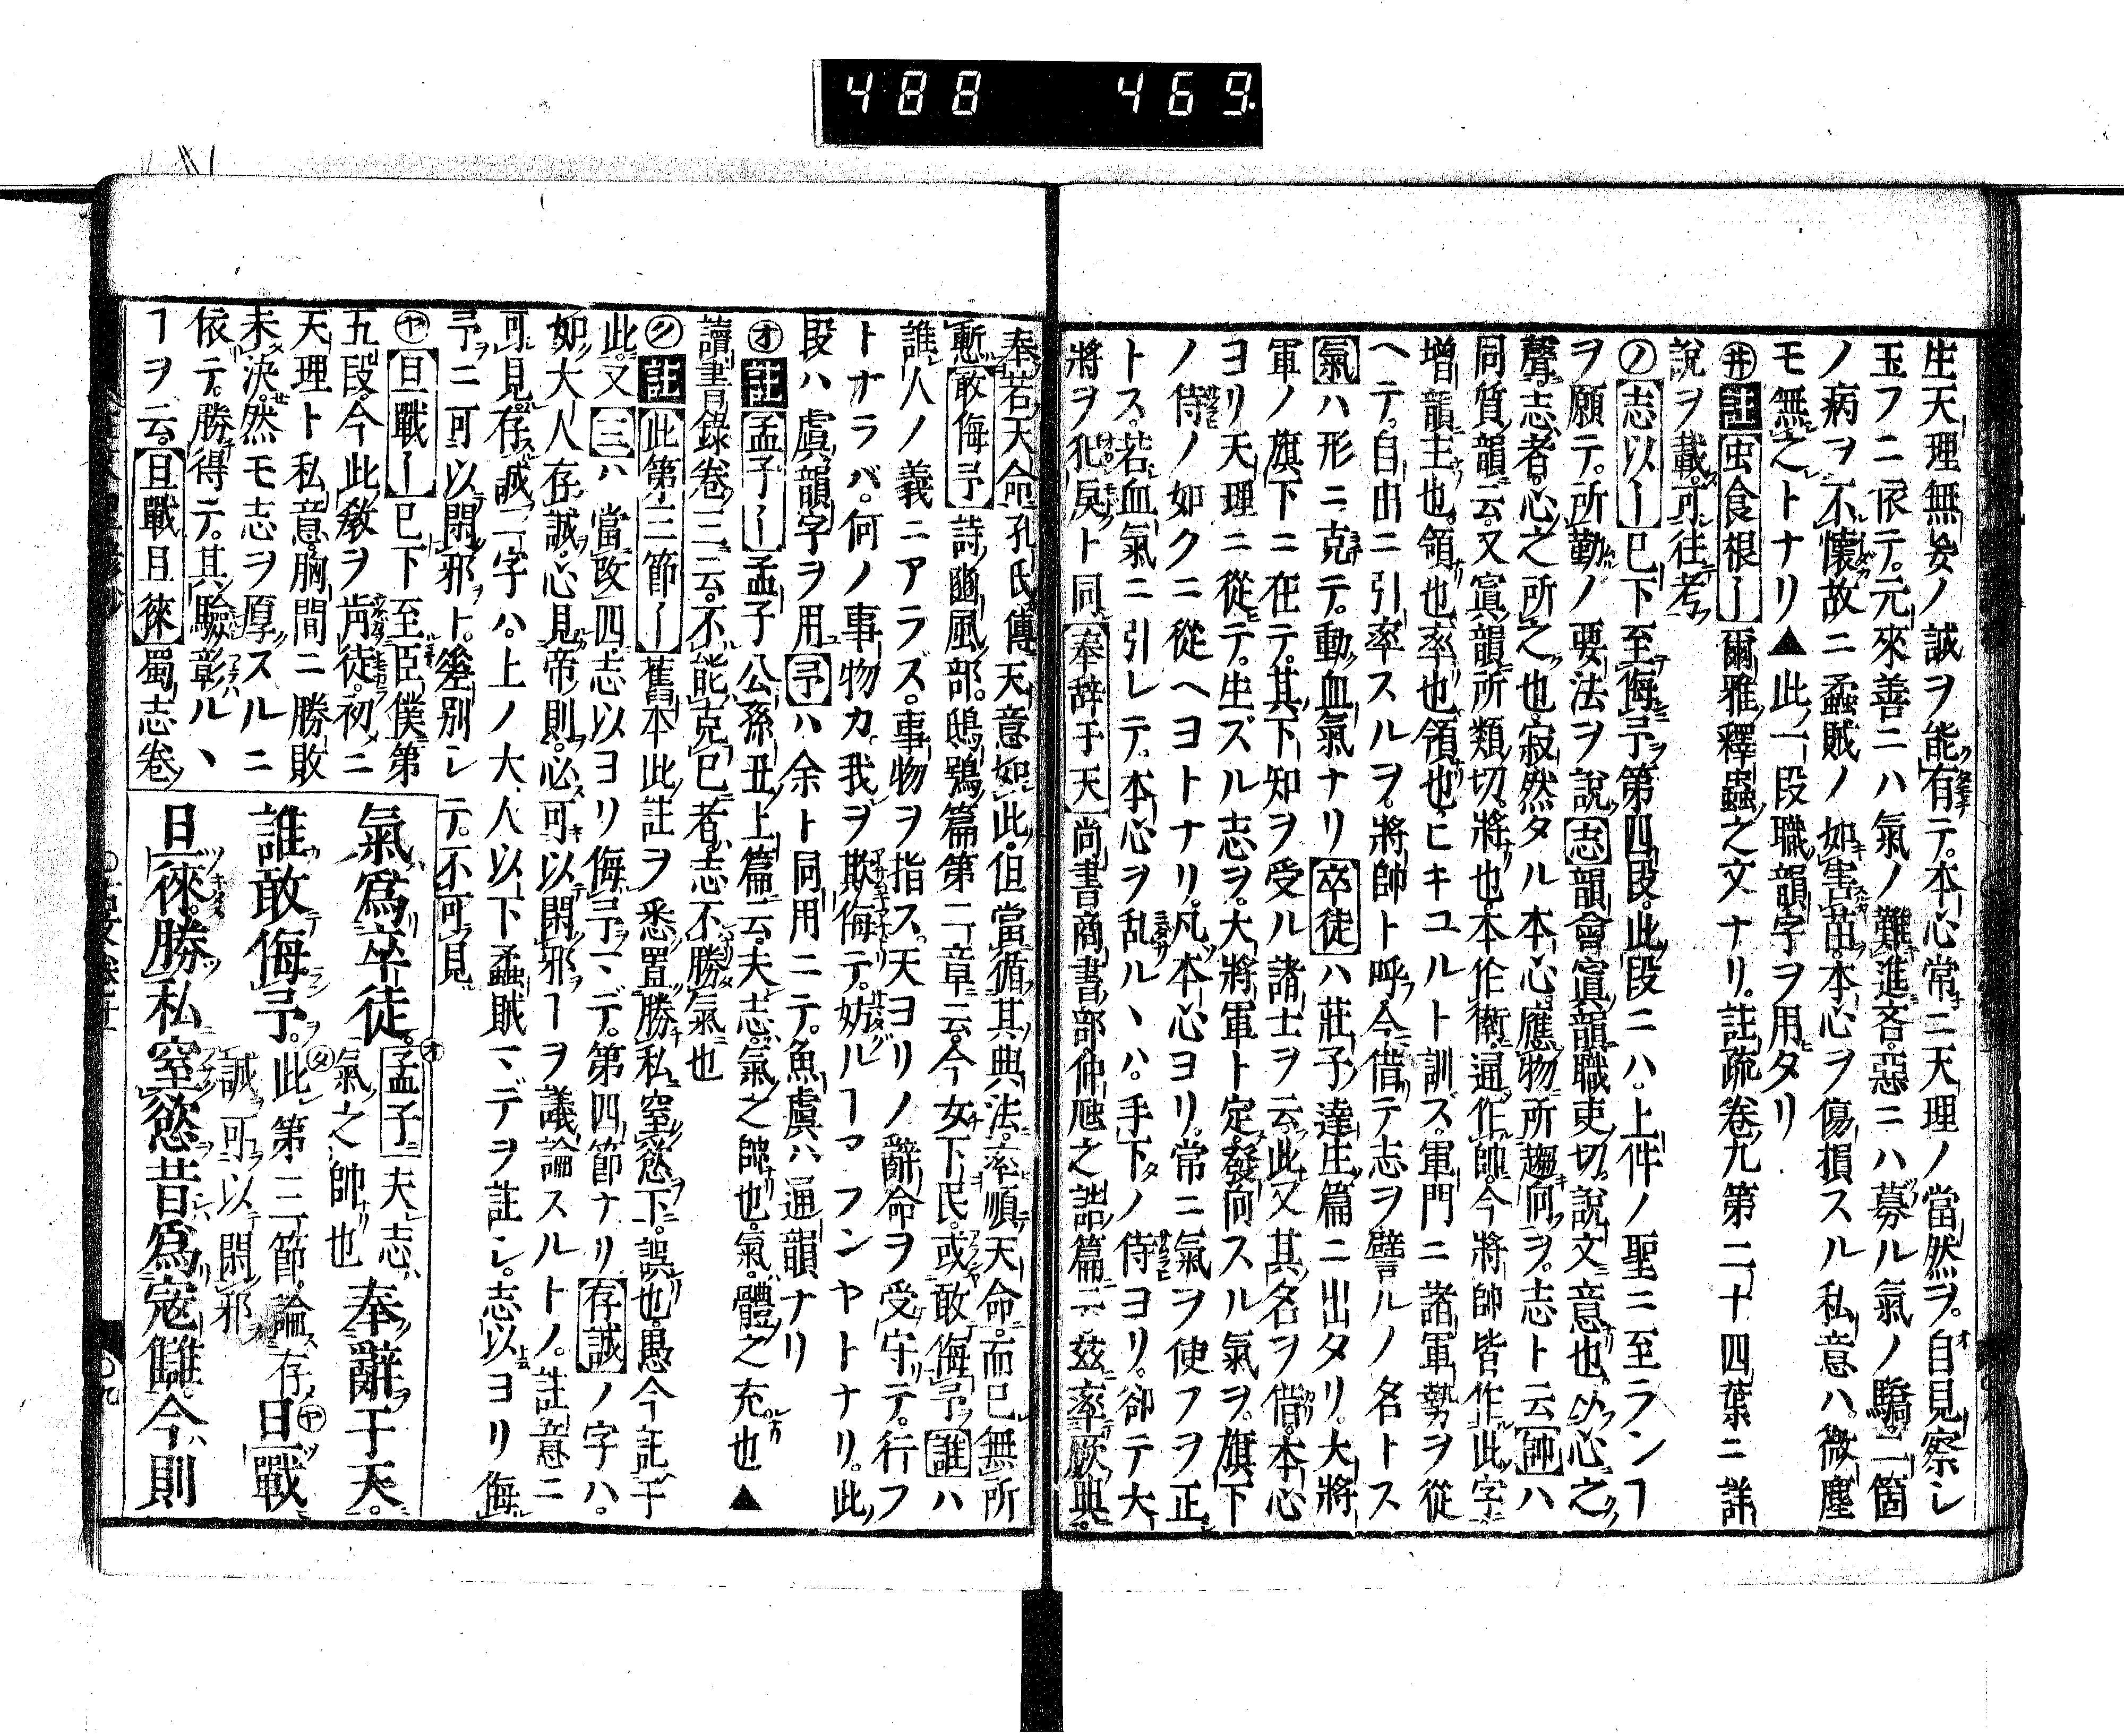 488 469
生天理無妄ノ誠ヲ能有テ。本心常ニ天理ノ當然ヲ。自見察シ
玉フニ依テ。元來善ニハ氣ノ難進吝。惡ニハ募ル氣ノ驕。二箇
ノ病ヲ不懷故ニ蟊賊ノ如害苗。本心ヲ傷損スル私意ハ。微塵
モ無之トナリ▲此一段職韻字ヲ用タリ
㋼註虫食根〡爾雅釋蟲之文ナリ。註疏卷九第二十四葉ニ詳
說ヲ載。可往考
㋨志以〡已下至侮予第四段。此段ニハ。上件ノ聖ニ至ランヿ
ヲ願テ。所勤ノ要法ヲ說志韻會寘韻職吏切。說文意也。从心之
聲。志者。心之所之也。寂然タル本心。應物所趨何ヲ。志ト云帥ハ
同質韻云。又寘韻所類切。將也。本作衛。通作帥。今將帥皆作此字
增韻主也。領也。率也。領也。ヒキユルト訓ズ。軍門ニ諸軍勢ヲ從
ヘテ。自由ニ引率スルヲ。將帥ト呼。今借テ志ヲ譬ルノ名トス
氣ハ形ニ克テ。動血氣ナリ卒徒ハ莊子達生篇ニ出タリ。大將
軍ノ旗下ニ在テ。其下知ヲ受ル諸士ヲ云。此又其名ヲ借。本心
ヨリ天理ニ從テ。生ズル志ヲ。大將軍ト定。發向スル氣ヲ。旗下
ノ侍ノ如クニ從ヘヨトナリ。凡本心ヨリ。常ニ氣ヲ使フヲ正
トス。若血氣ニ引レテ。本心ヲ乱ルヽハ。手下ノ侍ヨリ。卻テ大
將ヲ犯戾ト同奉辞于天尚書商書部仲虺之誥篇云。玆率厥典。
奉若天命。孔氏傳。天意如此。但當循其典法。奉順天命。而已無所
慙敢侮予詩豳風部。鴟鴞篇第二章云。今女下民。或敢侮予誰ハ
誰人ノ義ニアラズ。事物ヲ指ス。天ヨリノ辭命ヲ受守テ。行フ
トナラバ。何ノ事物カ。我ヲ欺侮テ。妨ルヿアランヤトナリ。此
段ハ虞韻字ヲ用予ハ余ト同用ニテ。魚虞ハ通韻ナリ
㋔註孟子〡孟子公孫丑上篇云。夫志。氣之帥也。氣。體之充也▲
讀書錄卷三云。不能克已者。志不勝氣也
㋗註此第三節〡舊本此註ヲ悉置勝私窒慾下。誤也。愚今註于
此。又三ハ當改四。志以ヨリ侮予マデ。第四節ナリ存誠ノ字ハ。
如大人存誠。心見帝則。必可以閑邪ヿヲ議論スルトノ。註意ニ
可見。存誠二字ハ。上ノ大人以下蟊賊マデヲ註シ。志以ヨリ侮
予ニ可以閑邪ト。差別シテ。不可見
㋳且戰〡已下至臣僕第
五段。今此敎ヲ肯徒。初ニ
天理ト私意。胸間ニ勝敗
未決。然モ志ヲ厚スルニ
依テ。勝得テ。其驗彰ルヽ
ヿヲ云。且戰且徠蜀志卷
氣爲卒徒。㋔孟子夫志氣之帥也奉辭于天。
誰敢侮予。㋗此第三節。論存誠可以閑邪㋳且戰
且徠。勝私窒慾。昔爲寇讎。今則